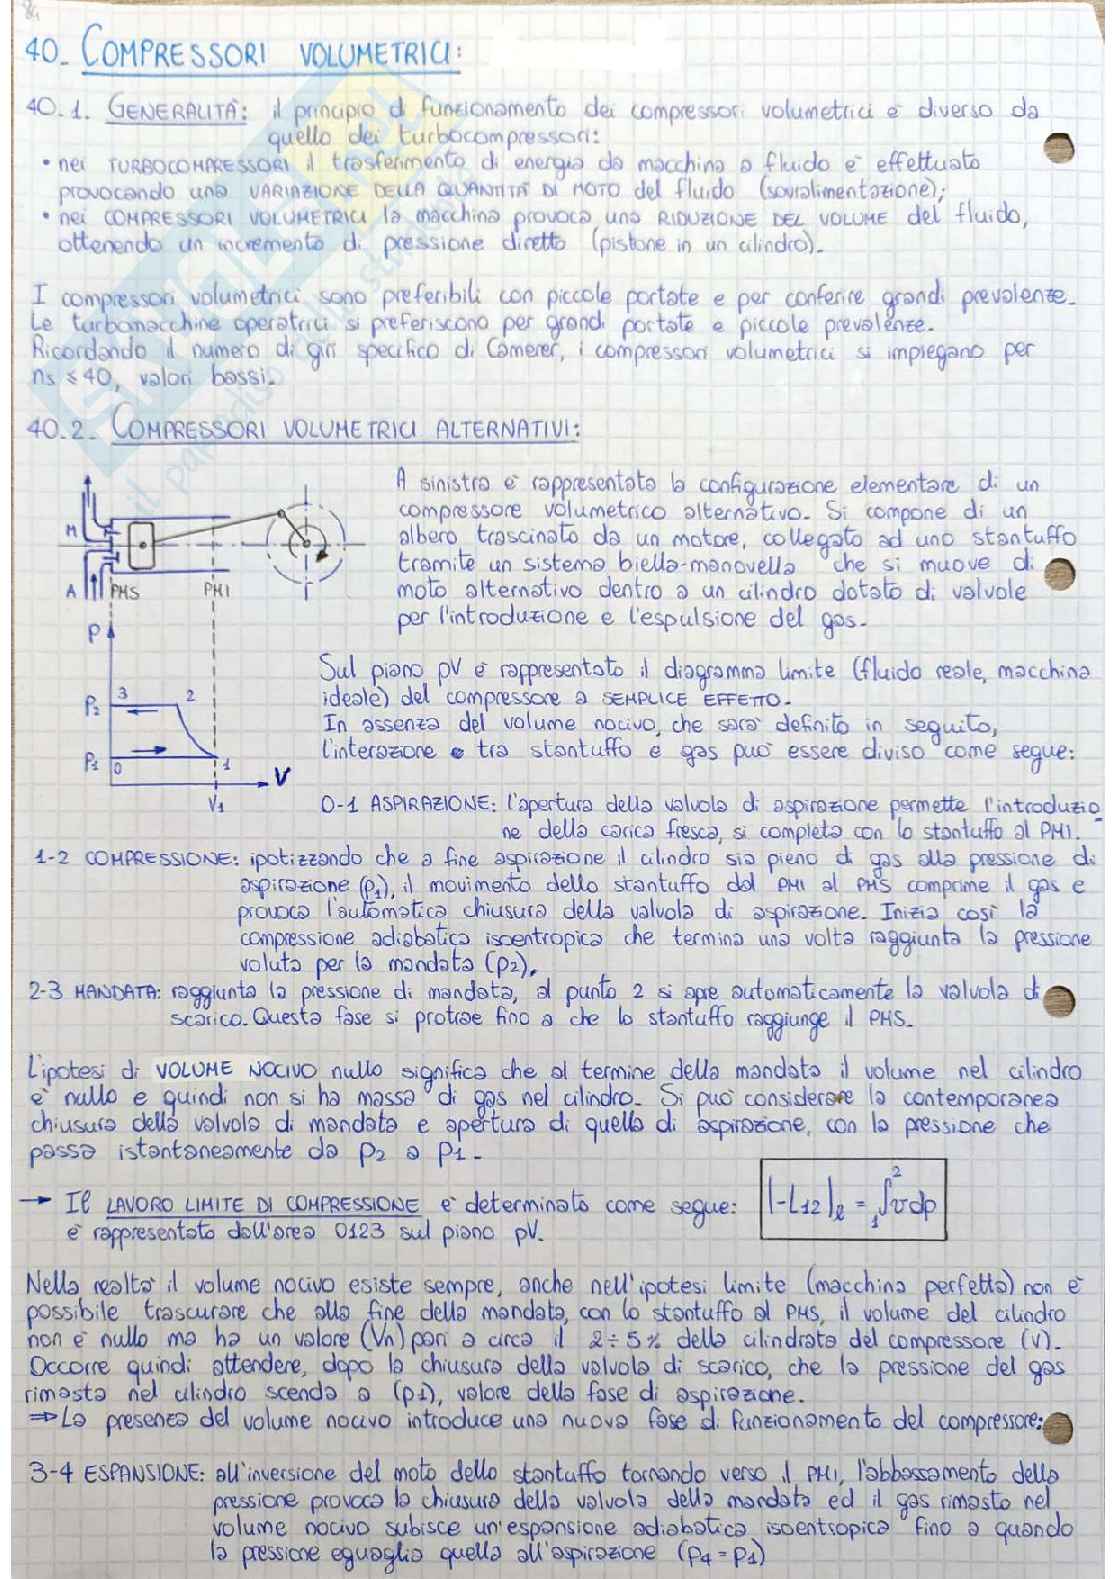 84
40_ COMPRESSORI VOLUMETRICI:
40.1. GENERALITÀ: il principio di funzionamento dei compressori volumetrici è diverso da
quello dei turbocompressori:
• nei TURBOCOMPRESSORI il trasferimento di energia da macchina a fluido è effettuato
provocando una VARIAZIONE DELLA QUANTITÀ DI MOTO del fluido (sovralimentazione);
• nei COMPRESSORI VOLUMETRICI la macchina provoca una RIDUZIONE DEL VOLUME del fluido,
ottenendo un incremento di pressione diretto (pistone in un cilindro).
I compressori volumetrici sono preferibili con piccole portate e per conferire grandi prevalenze.
Le turbomacchine operatrici si preferiscono per grandi portate e piccole prevalenze.
Ricordando il numero di giri specifico di Camerer, i compressori volumetrici si impiegano per
ns ≤ 40, valori bassi.
40.2_ COMPRESSORI VOLUMETRICI ALTERNATIVI:
A sinistra è rappresentata la configurazione elementare di un
compressore volumetrico alternativo. Si compone di un
albero trascinato da un motore, collegato ad uno stantuffo
tramite un sistema biella-manovella che si muove di
moto alternativo dentro a un cilindro dotato di valvole
per l'introduzione e l'espulsione del gas.
M
A
PMS
PMI
P
P2
3
2
P1
0
1
V
V1
Sul piano pV è rappresentato il diagramma limite (fluido reale, macchina
ideale) del compressore a SEMPLICE EFFETTO.
In assenza del volume nocivo, che sarà definito in seguito,
l'interazione tra stantuffo e gas può essere diviso come segue:
0-1 ASPIRAZIONE: l'apertura della valvola di aspirazione permette l'introduzio
ne della carica fresca, si completa con lo stantuffo al PMI.
1-2 COMPRESSIONE: ipotizzando che a fine aspirazione il cilindro sia pieno di gas alla pressione di
aspirazione (p1), il movimento dello stantuffo dal PMI al PMS comprime il gas e
provoca l'automatica chiusura della valvola di aspirazione. Inizia così la
compressione adiabatica isoentropica che termina una volta raggiunta la pressione
voluta per la mandata (p2).
2-3 MANDATA: raggiunta la pressione di mandata, al punto 2 si apre automaticamente la valvola di
scarico. Questa fase si protrae fino a che lo stantuffo raggiunge il PMS.
L'ipotesi di VOLUME NOCIVO nullo significa che al termine della mandata il volume nel cilindro
è nullo e quindi non si ha massa di gas nel cilindro. Si può considerare la contemporanea
chiusura della valvola di mandata e apertura di quella di aspirazione, con la pressione che
passa istantaneamente da p2 a p1.
→ Il LAVORO LIMITE DI COMPRESSIONE è determinato come segue: |-L12|ℓ = ₁∫² v dp
è rappresentato dall'area 0123 sul piano pV.
Nella realtà il volume nocivo esiste sempre, anche nell'ipotesi limite (macchina perfetta) non è
possibile trascurare che alla fine della mandata, con lo stantuffo al PMS, il volume del cilindro
non è nullo ma ha un valore (Vn) pari a circa il 2÷5% della cilindrata del compressore (V).
Occorre quindi attendere, dopo la chiusura della valvola di scarico, che la pressione del gas
rimasta nel cilindro scenda a (p1), valore della fase di aspirazione.
⇒ La presenza del volume nocivo introduce una nuova fase di funzionamento del compressore:
3-4 ESPANSIONE: all'inversione del moto dello stantuffo tornando verso il PMI, l'abbassamento della
pressione provoca la chiusura della valvola della mandata ed il gas rimasto nel
volume nocivo subisce un'espansione adiabatica isoentropica fino a quando
la pressione eguaglia quella all'aspirazione (p4 = p1)